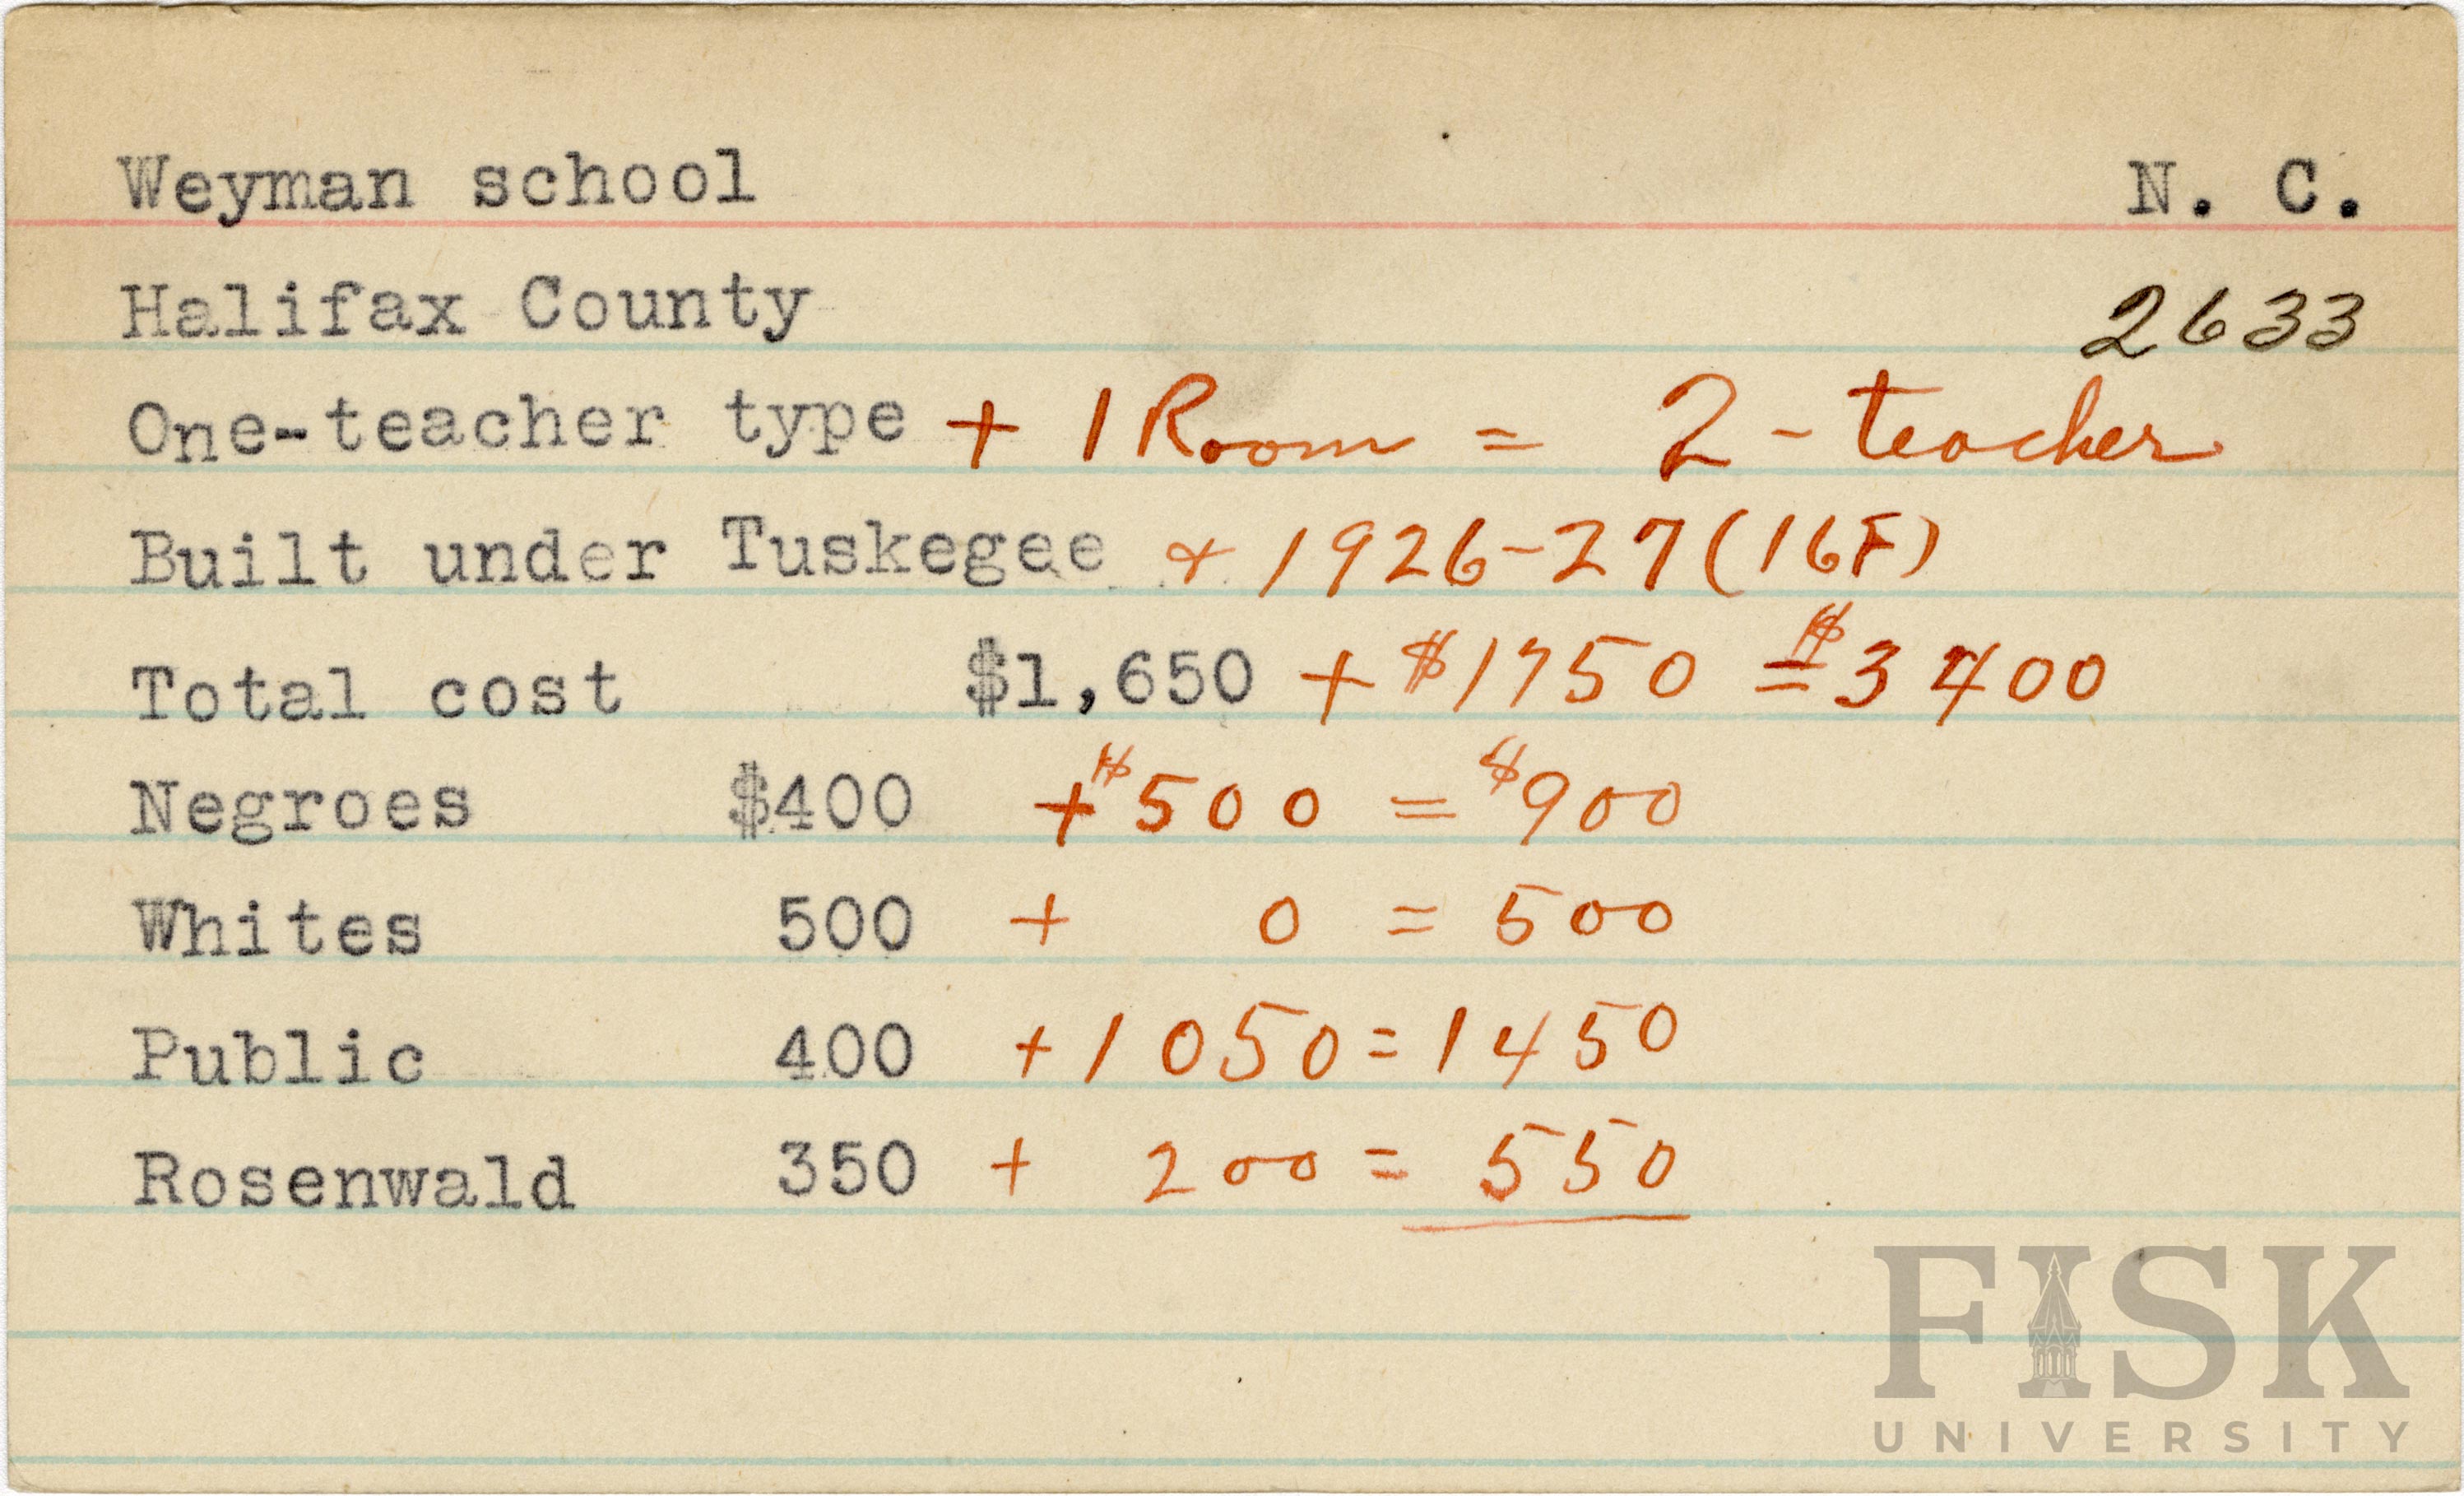 Weyman school N. C.
Halifax County 2633
One-teacher type + 1 Room = 2 - teacher
Built under Tuskegee + 1926-27 (16F)
Total cost $1,650 + $1750 = $3400
Negroes $400 + $500 = $900
Whites 500 + 0 = 500
Public 400 + 1050 = 1450
Rosenwald 350 + 200 = 550
FISK
UNIVERSITY